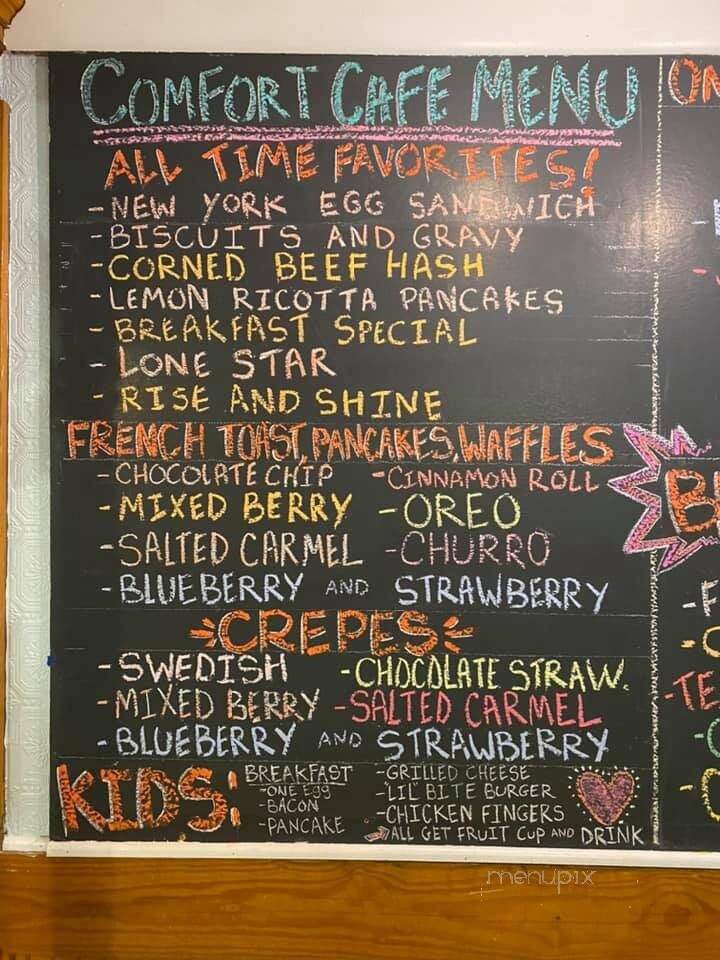 COMFORT CAFE MENU
ALL TIME FAVORITES!
- NEW YORK EGG SANDWICH
- BISCUITS AND GRAVY
- CORNED BEEF HASH
- LEMON RICOTTA PANCAKES
- BREAKFAST SPECIAL
- LONE STAR
- RISE AND SHINE
FRENCH TOAST, PANCAKES, WAFFLES
- CHOCOLATE CHIP - CINNAMON ROLL
- MIXED BERRY - OREO
- SALTED CARMEL - CHURRO
- BLUEBERRY AND STRAWBERRY
CREPES
- SWEDISH - CHOCOLATE STRAW.
- MIXED BERRY - SALTED CARMEL
- BLUEBERRY AND STRAWBERRY
KIDS:
BREAKFAST
- ONE Egg
- BACON
- PANCAKE
- GRILLED CHEESE
- 'LIL' BITE BURGER
- CHICKEN FINGERS
ALL GET FRUIT CUP AND DRINK
menupix